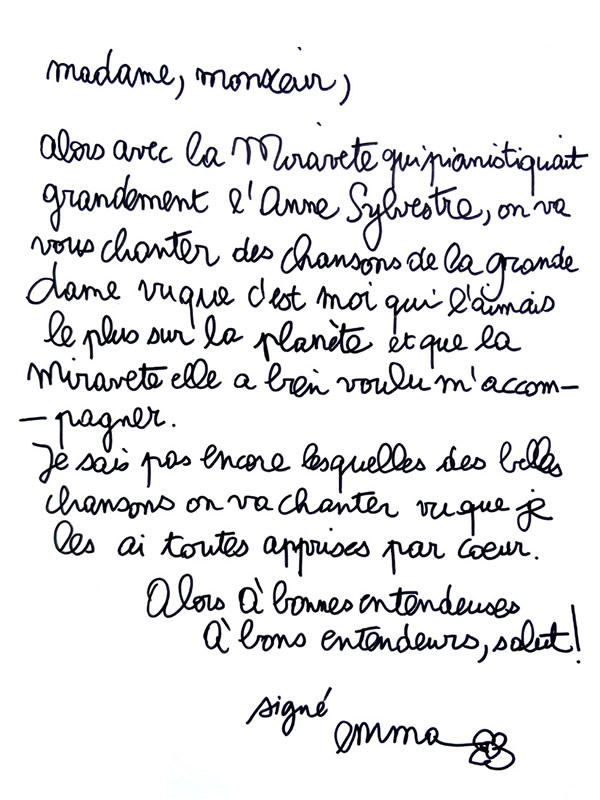 madame, monsieur,
alors avec la Miravete qui pianistiquait
grandement l'Anne Sylvestre, on va
vous chanter des chansons de la grande
dame vu que c'est moi qui l'aimais
le plus sur la planète et que la
Miravete elle a bien voulu m'accom-
- pagner.
Je sais pas encore lesquelles des belles
chansons on va chanter vu que je
les ai toutes apprises par coeur.
Alors à bonnes entendeuses
à bons entendeurs, salut !
signé
emma